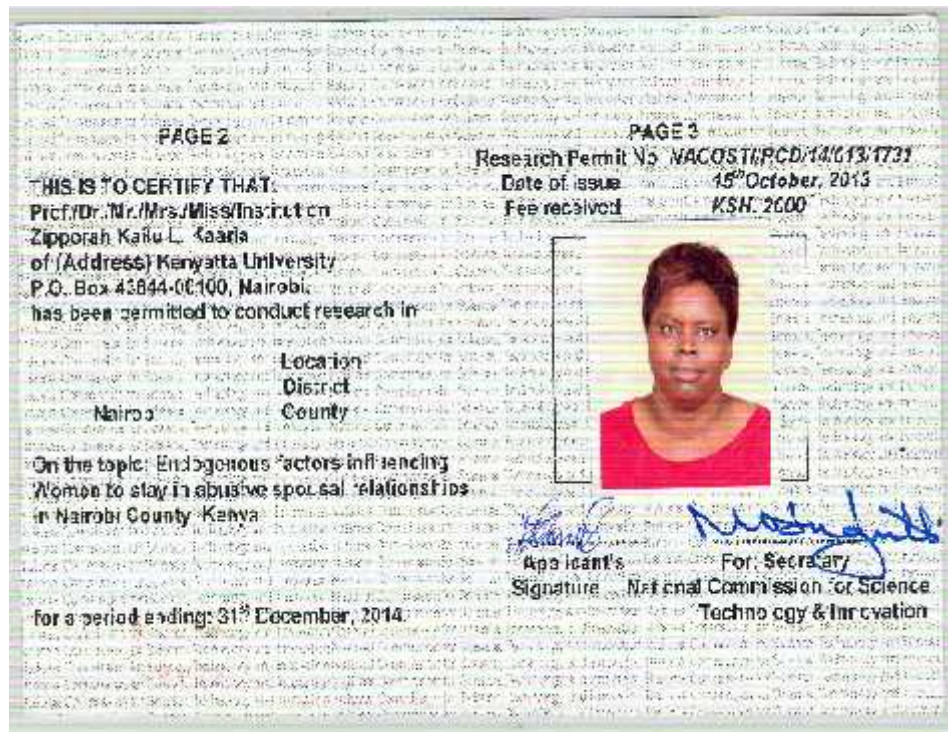 PAGE 2
THIS IS TO CERTIFY THAT:
Prof./Dr./Mr./Mrs./Miss/Institution
Zipporah Kailu L. Kaaria
of (Address) Kenyatta University
P.O. Box 43844-00100, Nairobi.
has been permitted to conduct research in
Location
District
Nairobi County
On the topic: Endogenous factors influencing
Women to stay in abusive spousal relationships
in Nairobi County Kenya
for a period ending: 31st December, 2014.
PAGE 3
Research Permit No. NACOSTI/RCD/14/013/1731
Date of issue 15th October, 2013
Fee received KSH. 2000
Applicant's
Signature
For: Secretary
National Commission for Science
Technology & Innovation